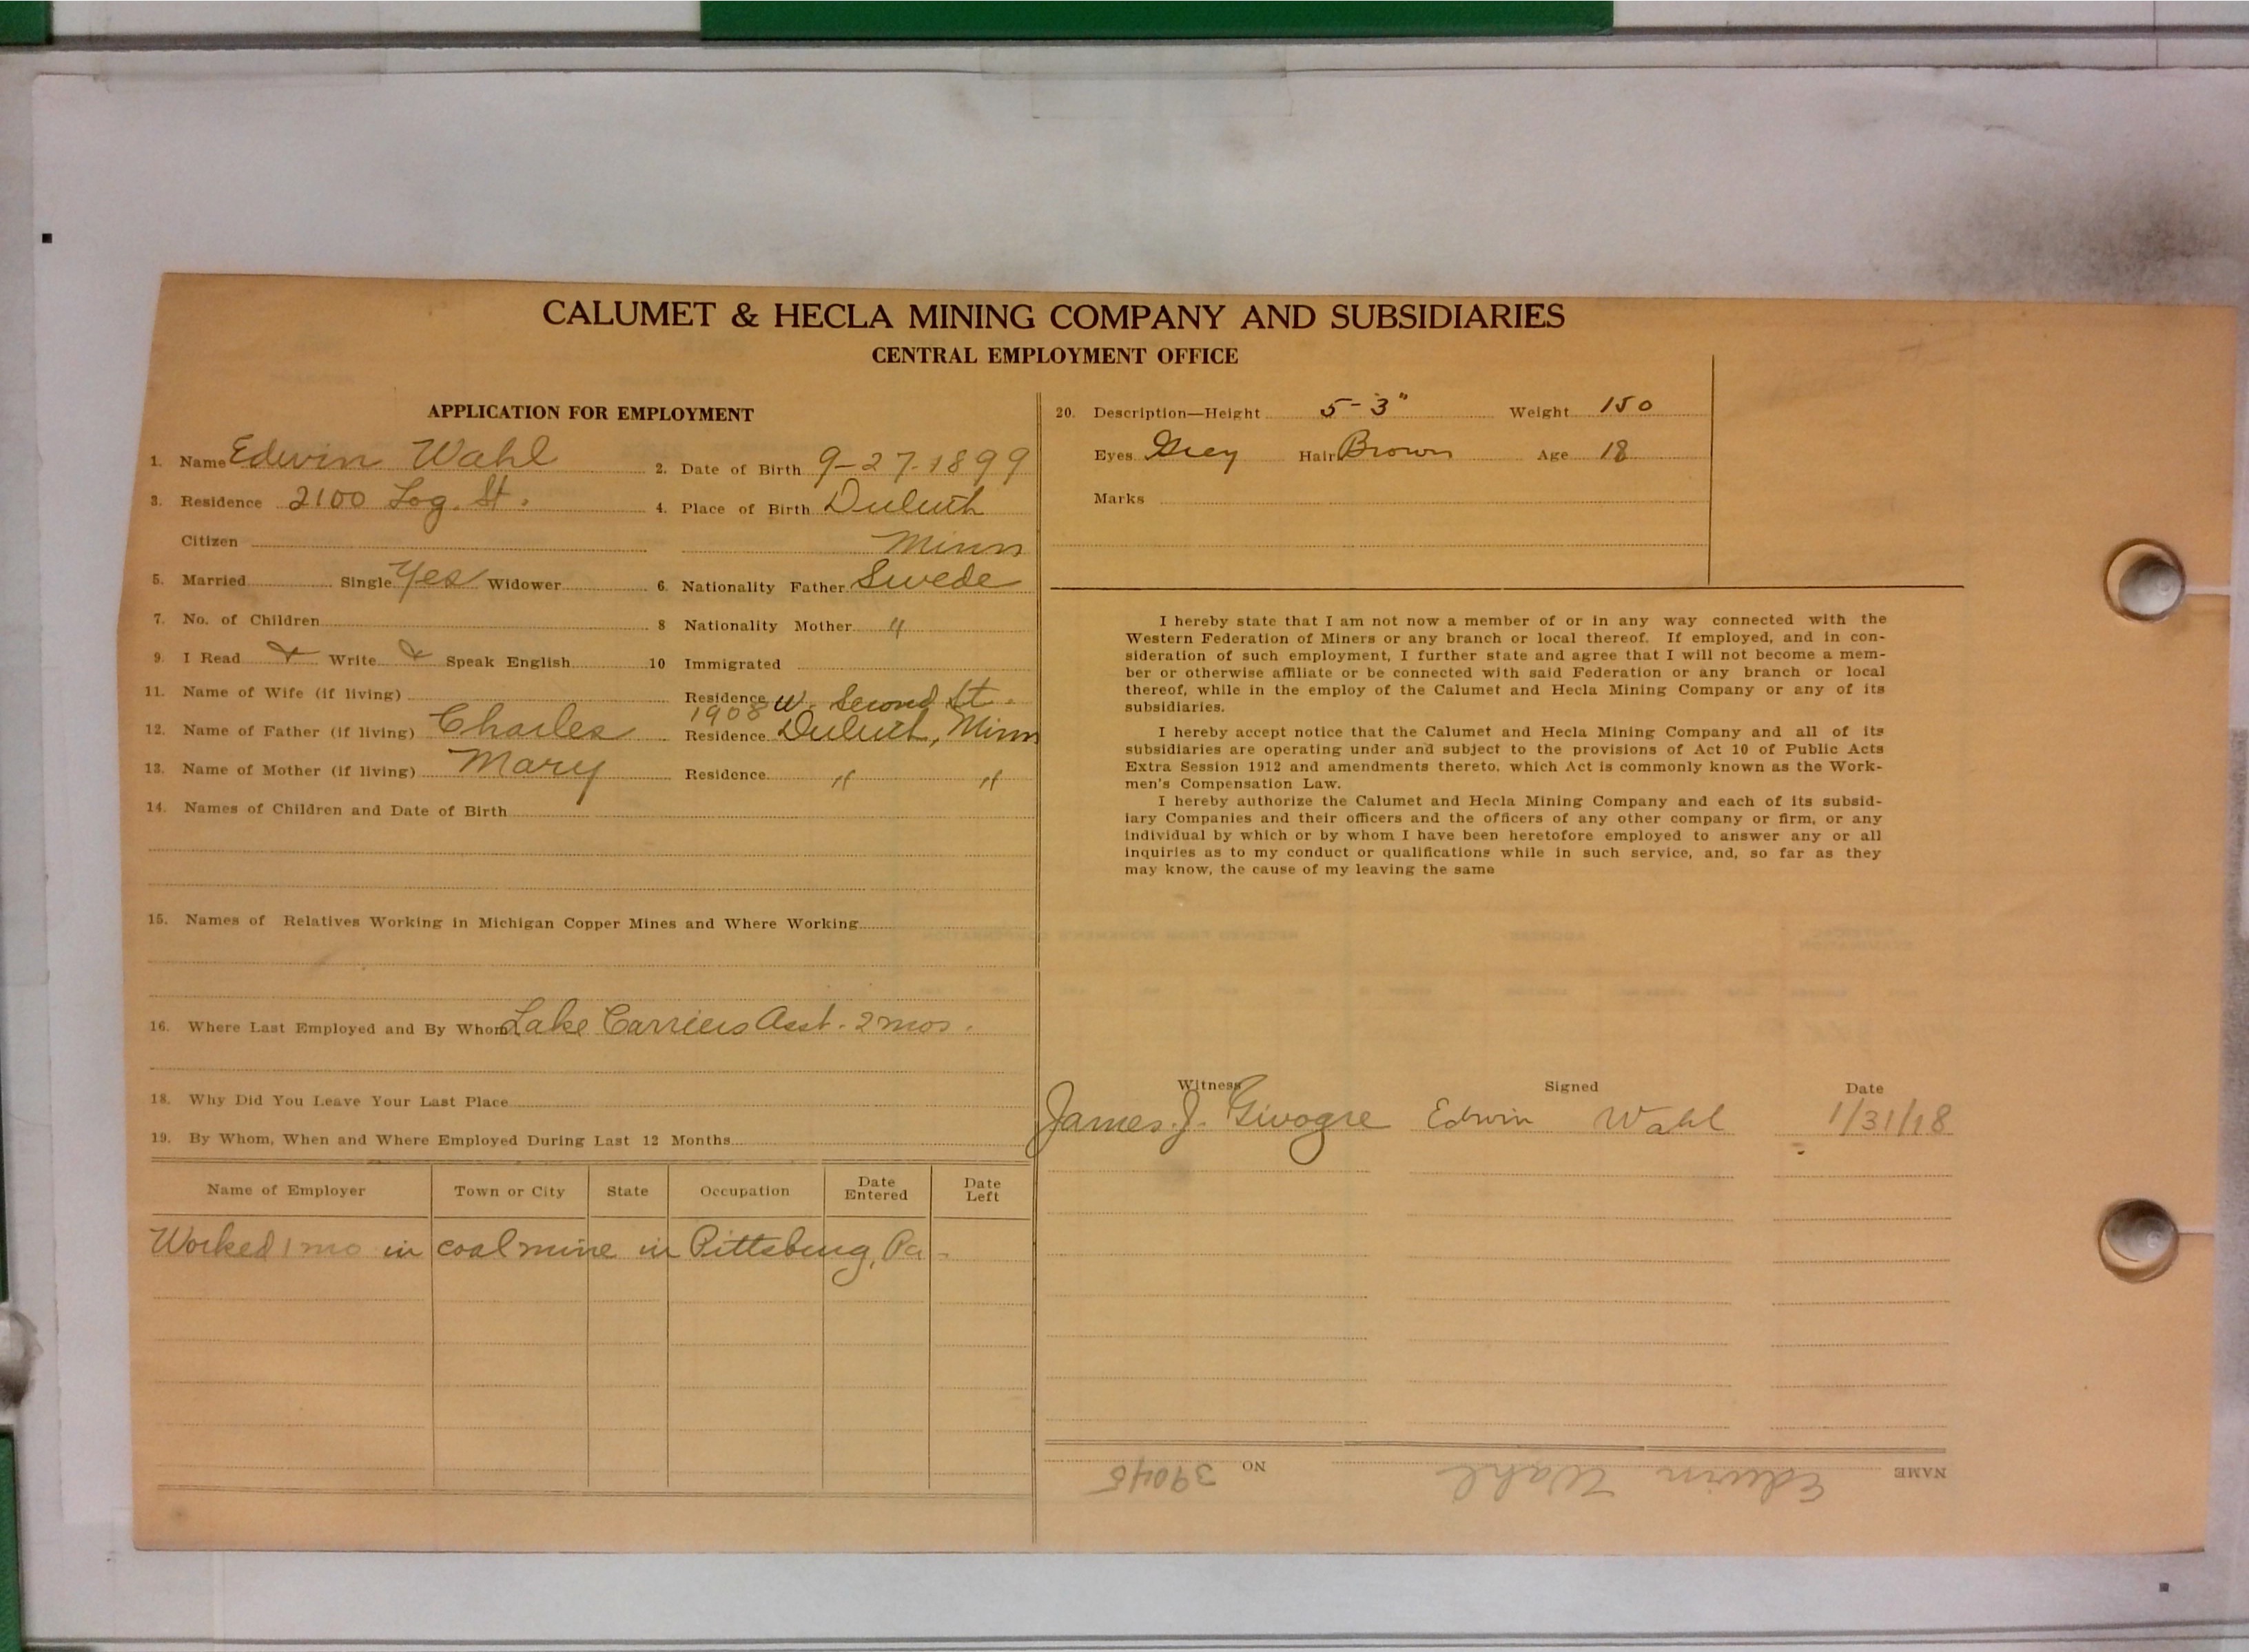 CALUMET & HECLA MINING COMPANY AND SUBSIDIARIES
CENTRAL EMPLOYMENT OFFICE
APPLICATION FOR EMPLOYMENT
1. Name Edwin Wahl 2. Date of Birth 9-27-1899
3. Residence 2100 Log. St. 4. Place of Birth Duluth
Citizen Minn
5. Married Single Yes Widower 6. Nationality Father Swede
7. No. of Children 8 Nationality Mother "
9. I Read Write Speak English 10 Immigrated
11. Name of Wife (if living) Residence W. Second St.
1908
12. Name of Father (if living) Charles Residence Duluth, Minn
13. Name of Mother (if living) Mary Residence " "
14. Names of Children and Date of Birth
15. Names of Relatives Working in Michigan Copper Mines and Where Working
16. Where Last Employed and By Whom Lake Carriers Asst. 2 mos.
18. Why Did You Leave Your Last Place
19. By Whom, When and Where Employed During Last 12 Months
Name of Employer Town or City State Occupation Date Entered Date Left
Worked 1 mo in coal mine in Pittsburg, Pa.
20. Description—Height 5-3" Weight 150
Eyes Grey Hair Brown Age 18
Marks
I hereby state that I am not now a member of or in any way connected with the
Western Federation of Miners or any branch or local thereof. If employed, and in con-
sideration of such employment, I further state and agree that I will not become a mem-
ber or otherwise affiliate or be connected with said Federation or any branch or local
thereof, while in the employ of the Calumet and Hecla Mining Company or any of its
subsidiaries.
I hereby accept notice that the Calumet and Hecla Mining Company and all of its
subsidiaries are operating under and subject to the provisions of Act 10 of Public Acts
Extra Session 1912 and amendments thereto, which Act is commonly known as the Work-
men's Compensation Law.
I hereby authorize the Calumet and Hecla Mining Company and each of its subsid-
iary Companies and their officers and the officers of any other company or firm, or any
individual by which or by whom I have been heretofore employed to answer any or all
inquiries as to my conduct or qualifications while in such service, and, so far as they
may know, the cause of my leaving the same
Witness Signed Date
James J. Givogre Edwin Wahl 1/31/18
NAME Edwin Wahl NO 39045